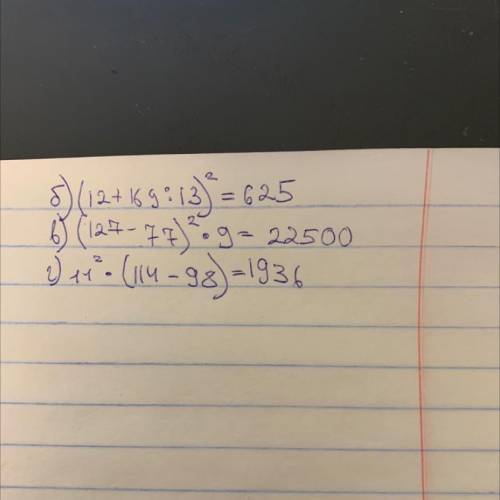 б) (12+169:13)² = 625
в) (127-77)² · 9 = 22500
г) 11² · (114-98) = 1936